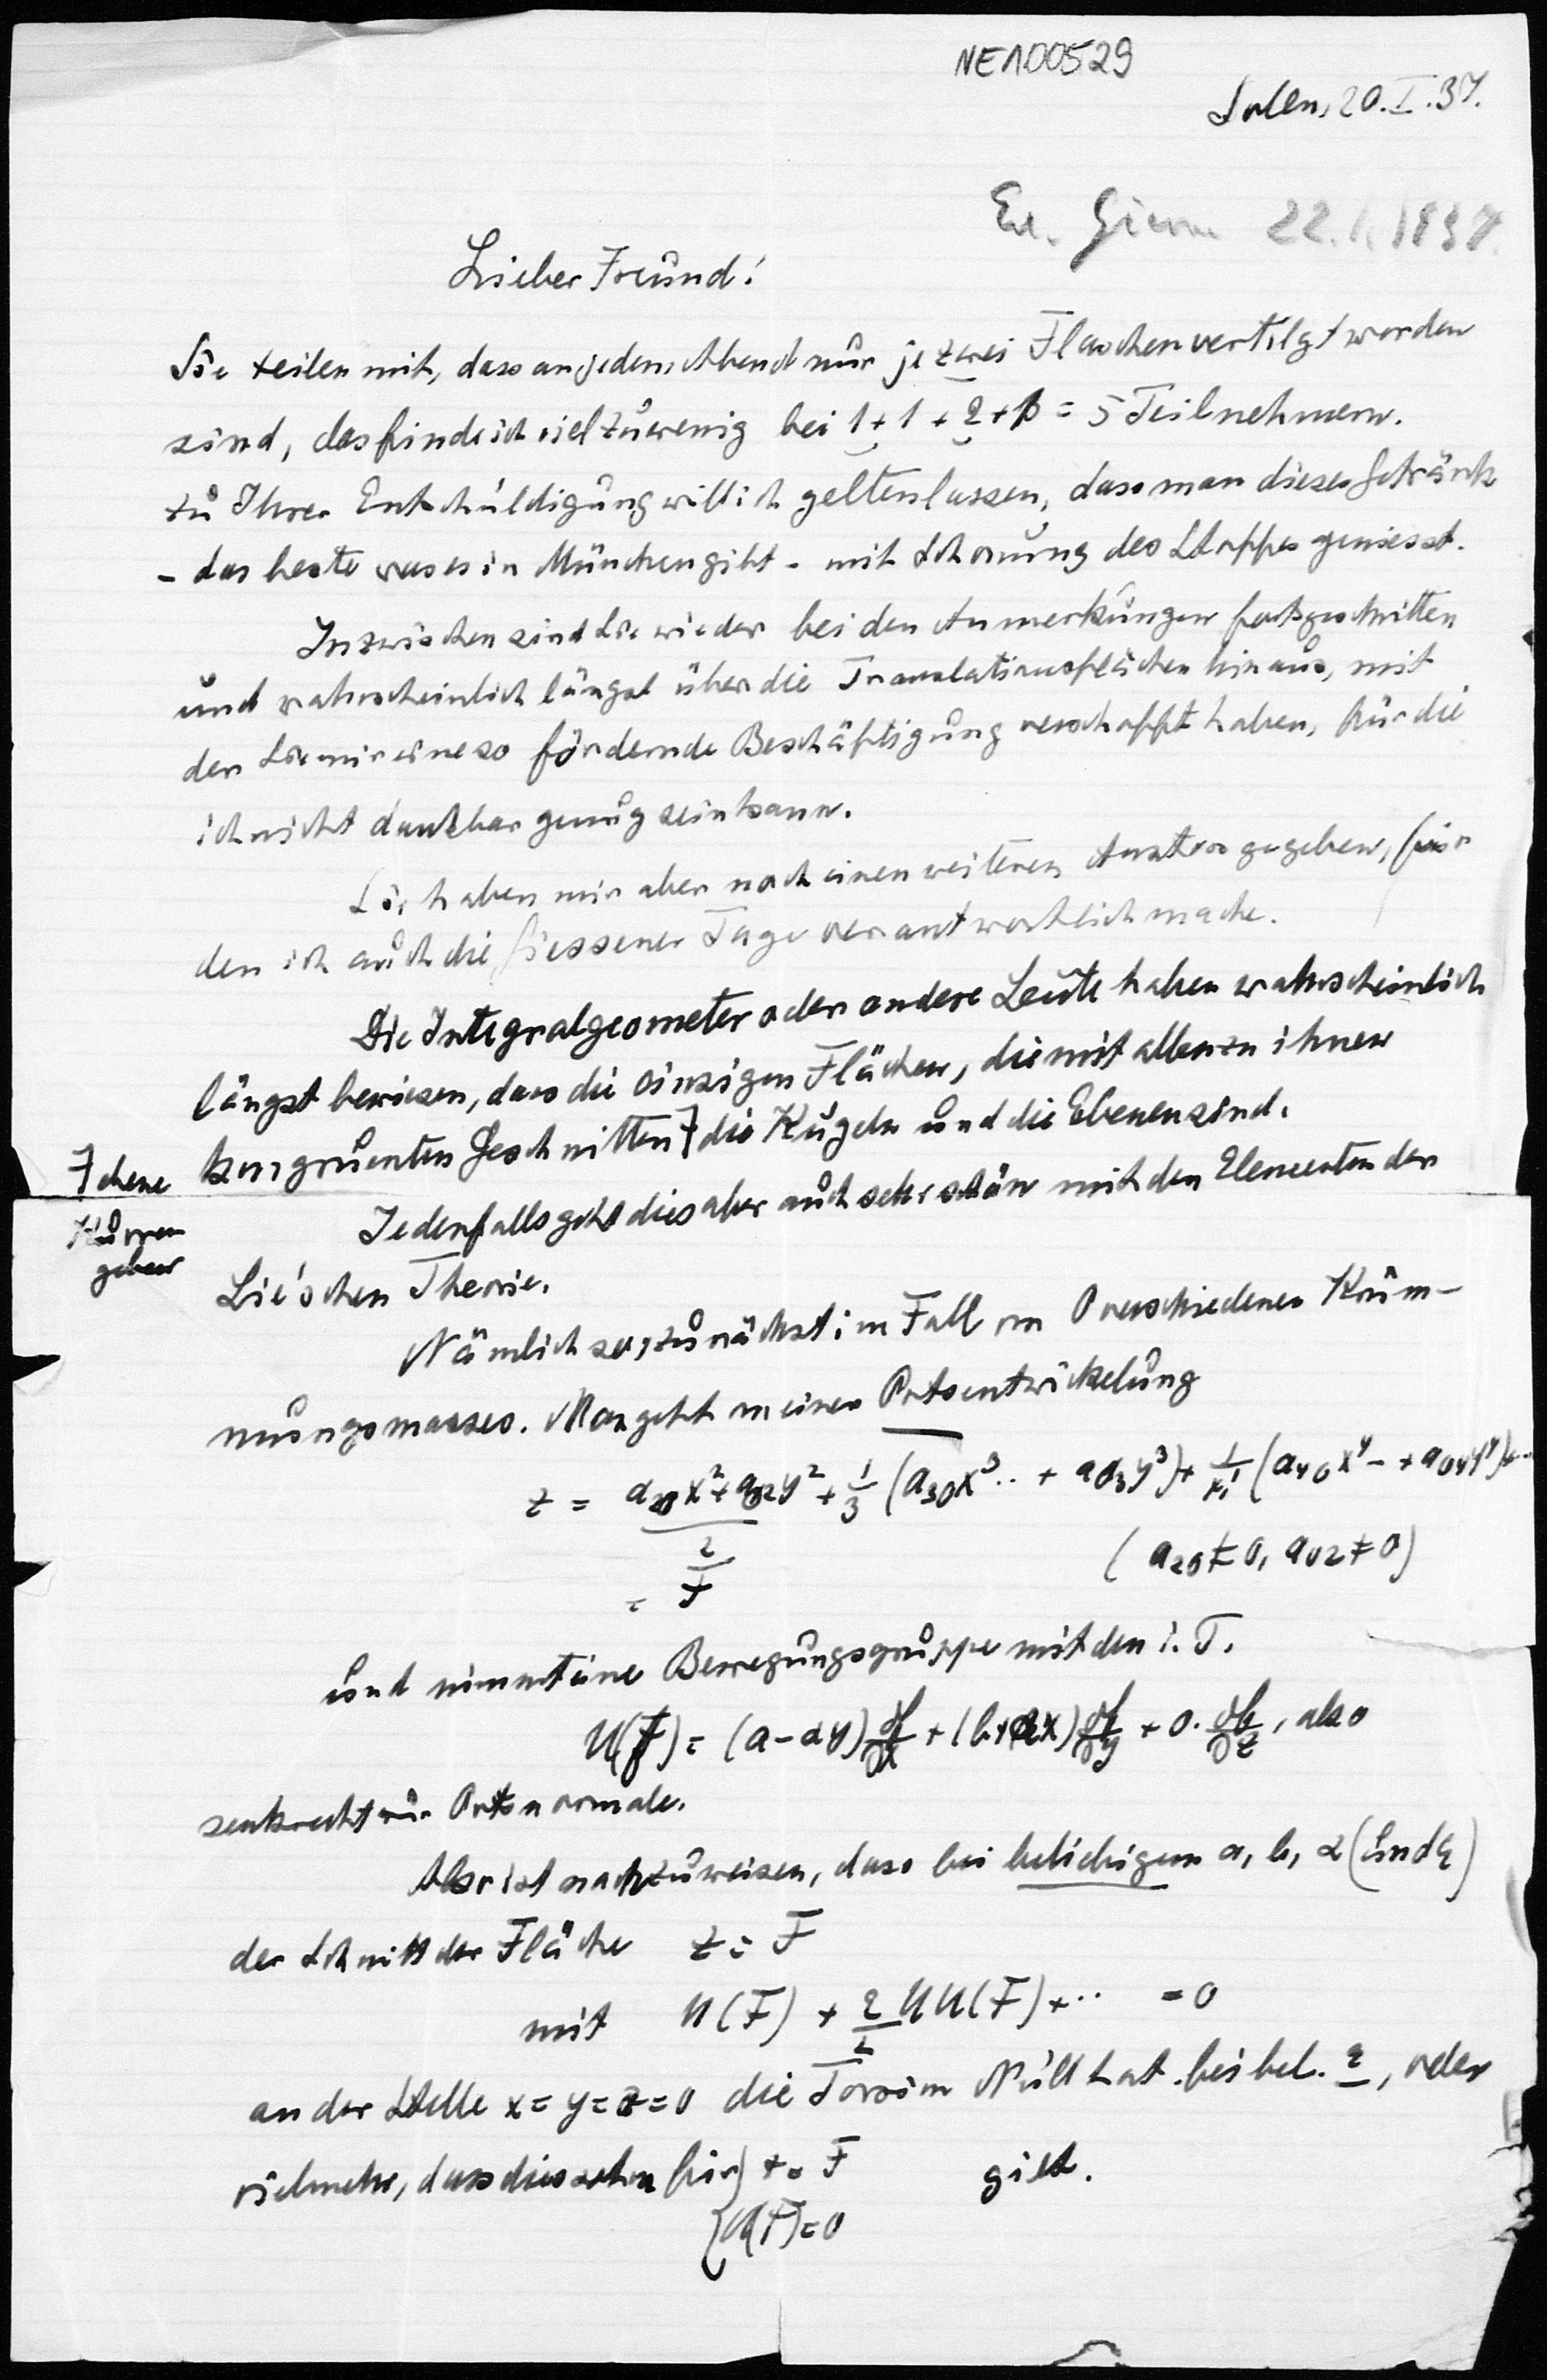 NE100529
Salem, 20.I.37.
22.1.1937.
Lieber Freund!
Sie teilen mit, dass an jedem Abend nur je zwei Flaschen vertilgt worden
sind, das finde ich viel zu wenig bei 1+1+2+1 = 5 Teilnehmern.
Zu Ihrer Entschuldigung will ich gelten lassen, dass man dieses Getränk
- das beste was es in München gibt - mit Schonung des Stoffes geniesst.
Inzwischen sind Sie wieder bei den Anmerkungen fortgeschritten
und wahrscheinlich längst über die Translationsflächen hinaus, mit
der Sie mir eine so fördernde Beschäftigung verschafft haben, für die
ich nicht dankbar genug sein kann.
Sie haben mir aber noch einen weiteren Anstoss gegeben, für
den ich auch die Giessener Tage verantwortlich mache.
Die Integralgeometer oder andere Leute haben wahrscheinlich
längst bewiesen, dass die einzigen Flächen, die mit allen zu ihnen
kongruenten geschnitten Ƒ die Kugeln und die Ebenen sind.
Ƒ ebene
Kurven
geben
Jedenfalls geht dies aber auch sehr schön mit den Elementen der
Lie'schen Theorie.
Nämlich so, zunächst im Fall von 0 verschiedenen Krüm-
mungsmasses. Man geht von einer Ortsentwickelung
z = (a20x²+a02y²)/2 + 1/3 (a30x³.. + a03y³) + 1/4! (a40x⁴ – + a04y⁴)+..
(a20≠0, a02≠0)
= F
und nimmt eine Bewegungsgruppe mit den i. T.
U(f) = (a-αy) ∂f/∂x + (b+αx) ∂f/∂y + 0. ∂f/∂z, also
senkrecht zur Ortsnormale.
Aber ist nachzuweisen, dass bei beliebigem a, b, α (und ε)
der Schnitt der Fläche z = F
mit U(F) + ε/2 UU(F) + ·· = 0
an der Stelle x = y = z = 0 die Torsion Null hat bei bel. ε, oder
vielmehr, dass dies schon für { z = F gilt.
{ U(F) = 0